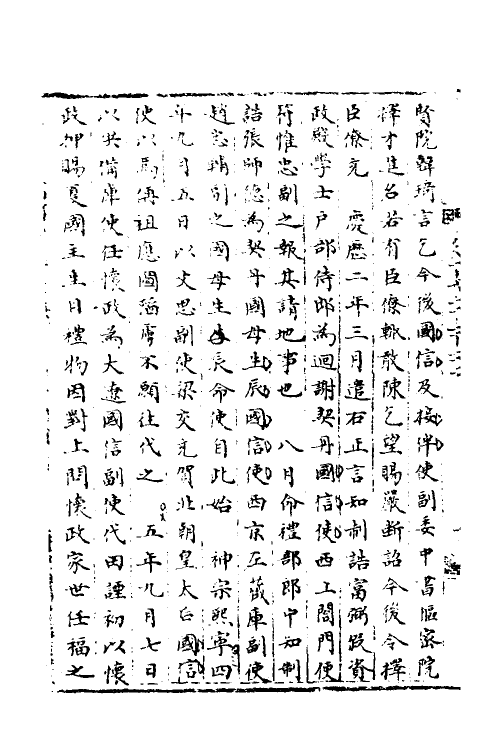 賢院韓琦言乞今後國信及接伴使副委中書樞密院
擇才進名若有臣僚輒敢陳乞望賜嚴斷詔今後令擇
臣僚充　慶歷二年三月遣右正言知制誥富弼假資
政殿學士戶部侍郎為迴謝契丹國信使西上閤門使
符惟忠副之報其請地事也　八月命禮部郎中知制
誥張師德為契丹國母生辰國信使西京左藏庫副使
趙忠輔副之國母生辰長命使自此始　神宗熙寧四
年九月五日以文思副使梁交充賀北朝皇太后國信
使以馬偁祖應圖酒膚不願往代之　五年九月七日
以供備庫使任懷政為大遼國信副使代田諲初以懷
政押賜夏國主生日禮物因對上問懷政家世任福之